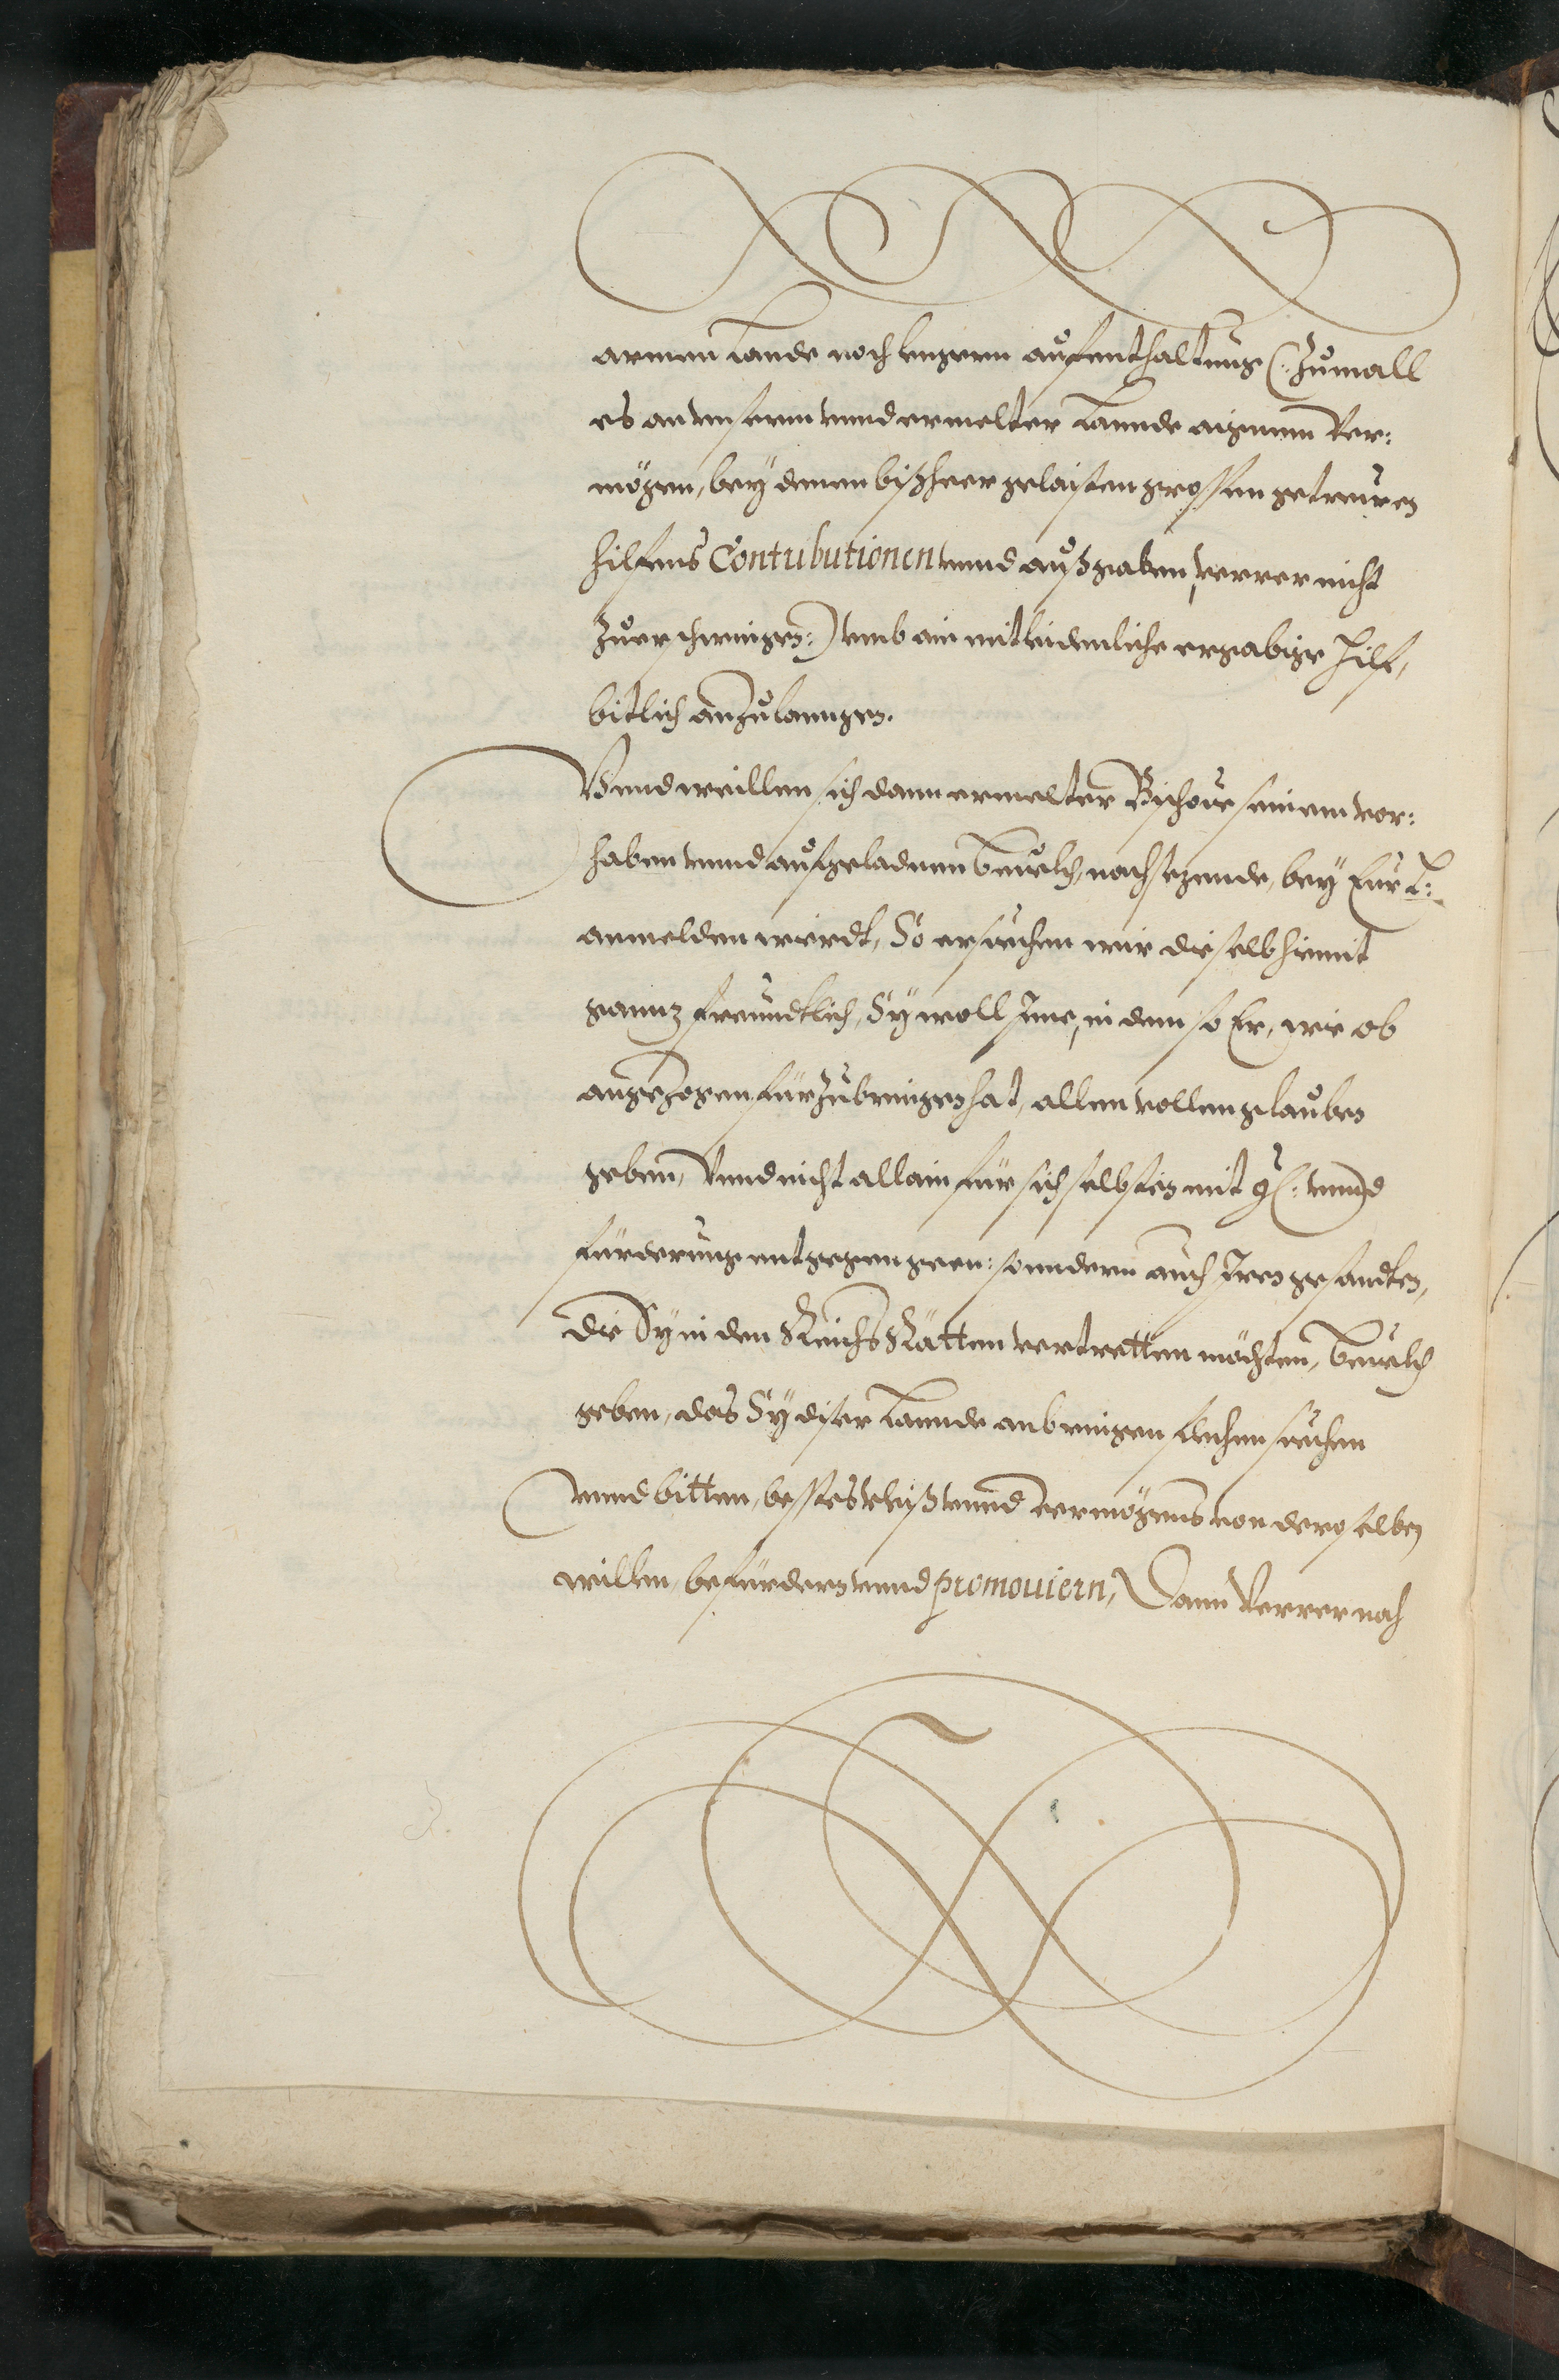 armen Lande noch lengern aufenthaltung (: Zumall
es an unserm unnd ermelter Lannde aigenem Ver:
mögen, bey denen bißheer gelaisten grossen getreuen
hilfens Contributionen unnd außgaben, ferrer nicht
zuerschwingen :) umb ain mitleidenliche ergäbige Hilf,
bitlich anzulanngen.
Unnd weillen sich dann ermelter Bischove seinem vor:
haben unnd aufgeladnem bevelch, nachsezende, bey Eur L:
anmelden wierdt, So ersuechen wir dieselb hiemit
gannz freundtlich, Sy woll Ime, in dem so Er, wie ob
angezogen fürzubringen hat, allen vollen glauben
geben, Unnd nicht allain für sich selbsten mit unnd
fürderung entgegen geen: sonndern auch Iren gesandten,
die Sy in den Reichs Rätten vertretten möchten, bevelch
geben, das Sy diser Lannde anbringen flechen suechen
unnd bitten, besstes vleiß unnd vermögens von deroselben
willen, befürdern unnd promouiern, Dann Verrer nach